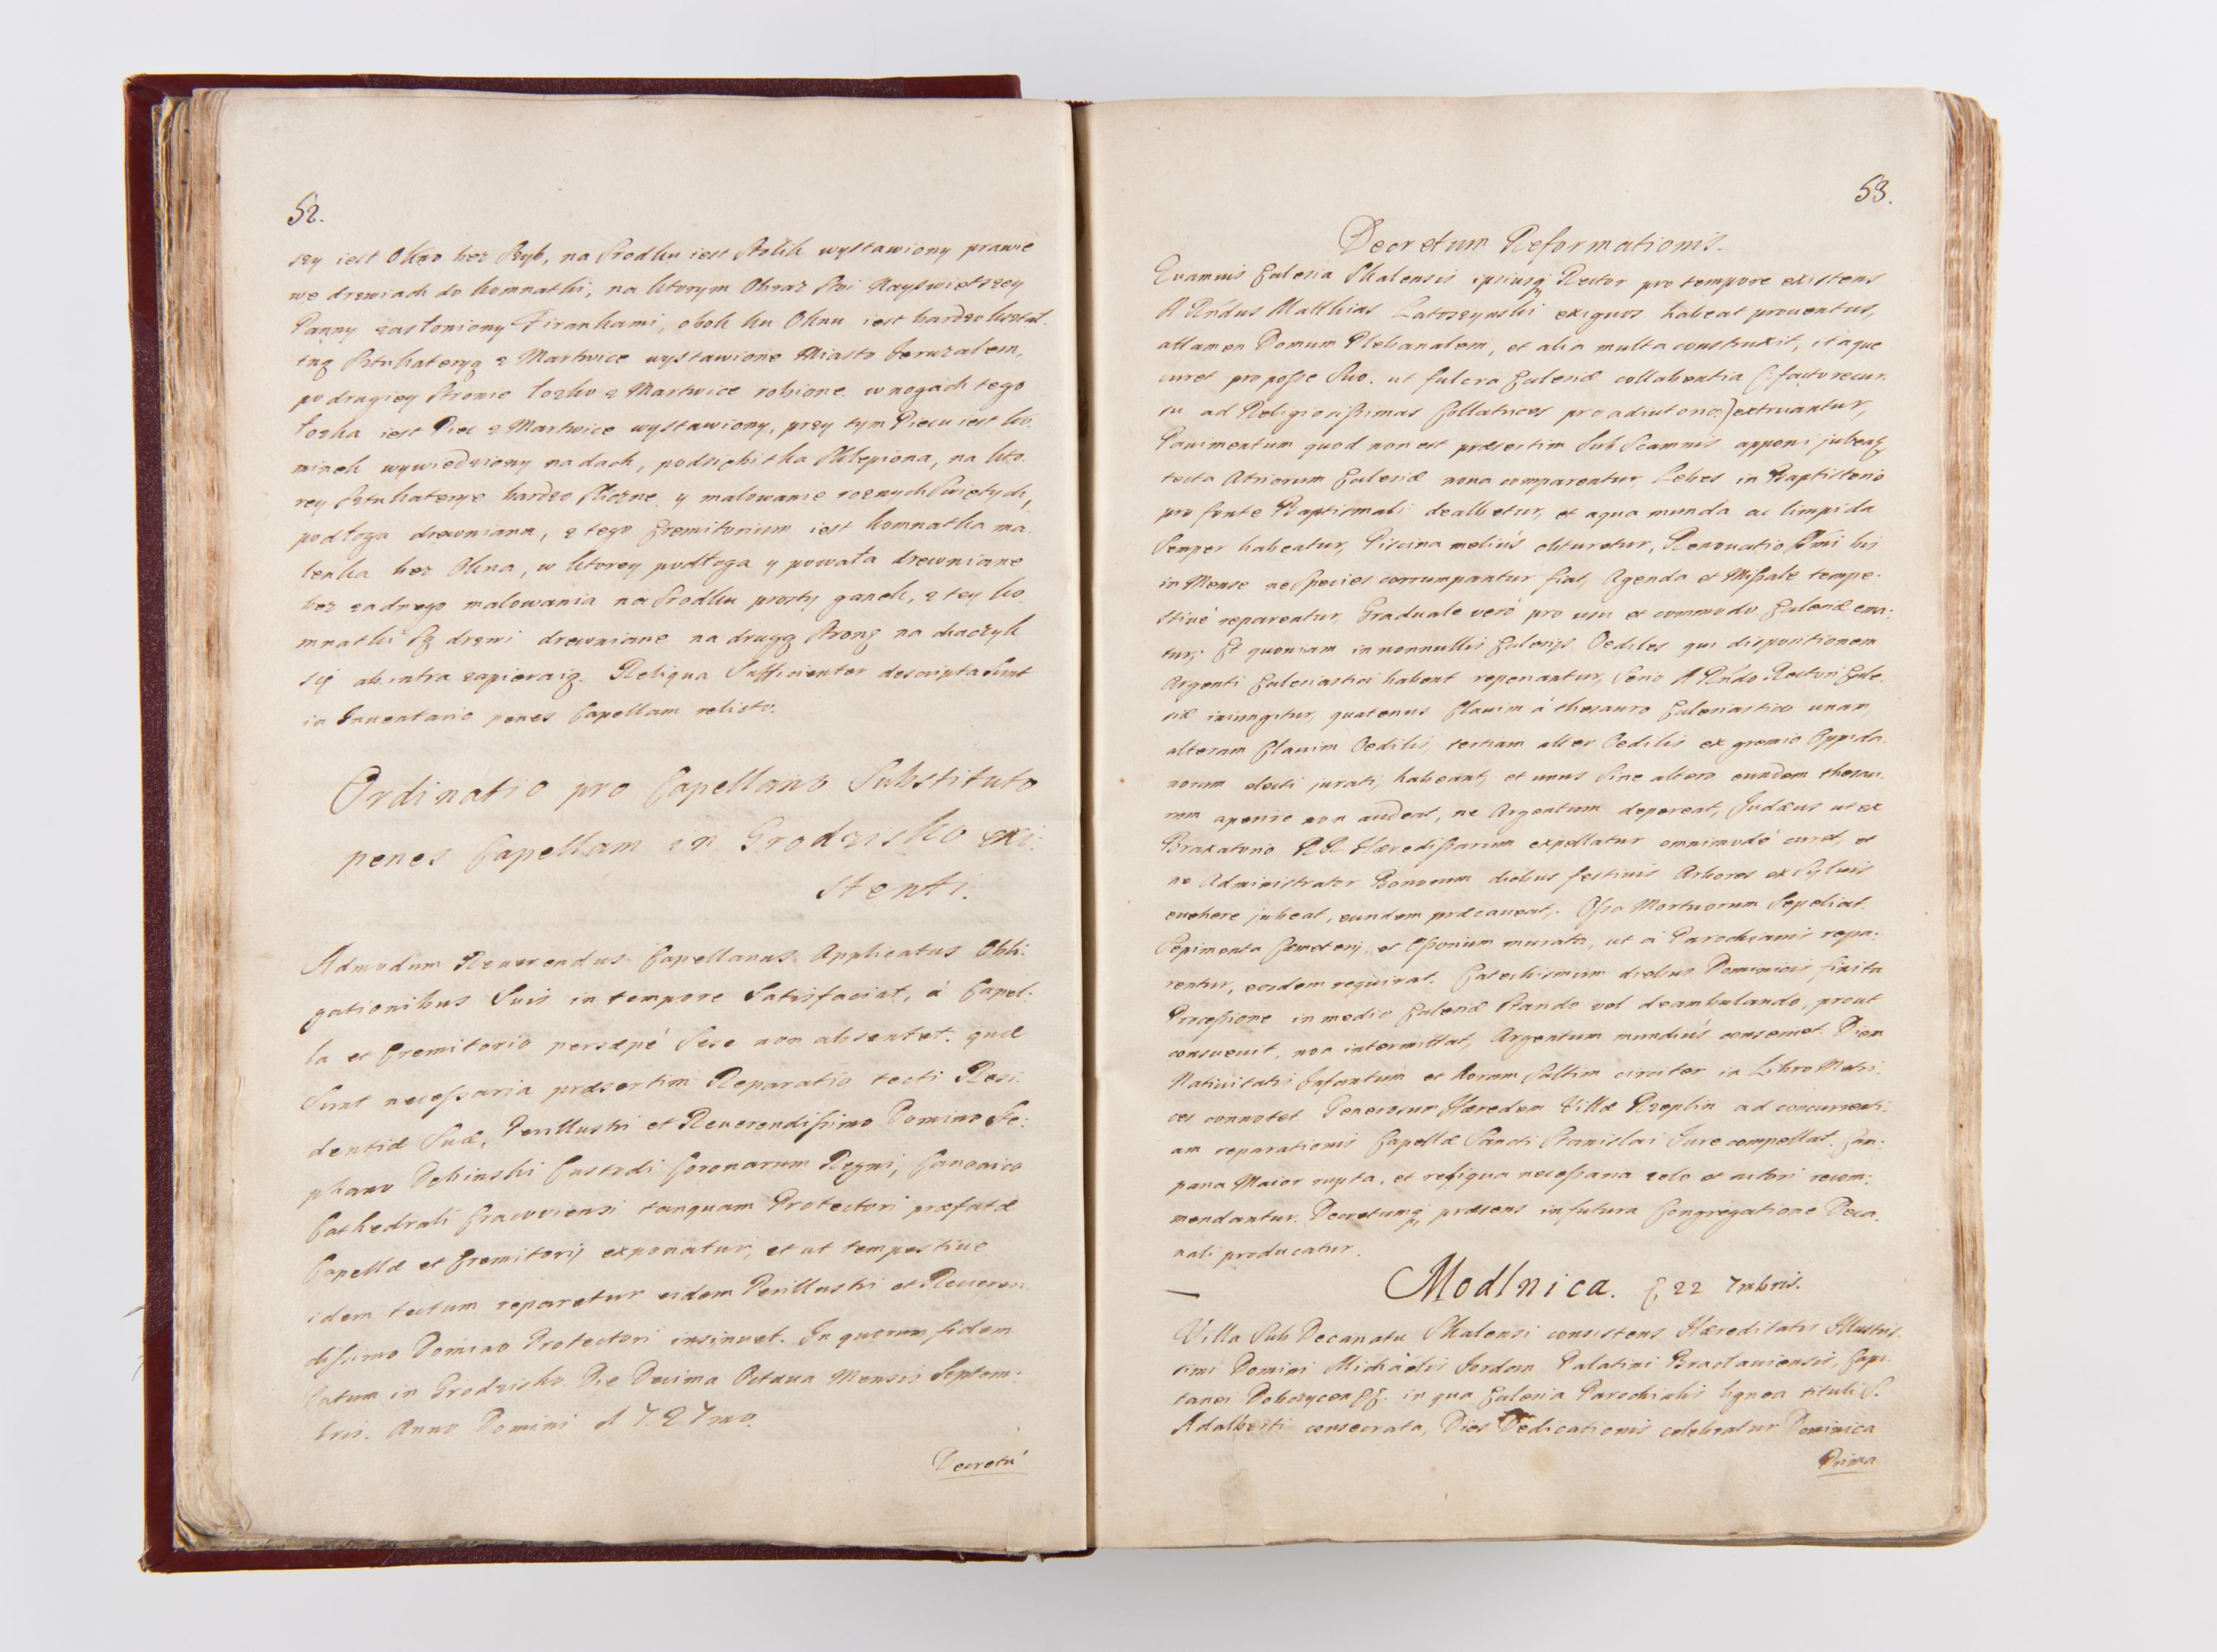 52.
szy iest Okno bez Szyb, na Srodku iest Stolik wystawiony prawie
we drzwiach do komnathi, na ktorym Obraz Stoi Nayswietszey
Panny zasłoniony Firankami, obok ku Oknu iest bardzo kształ-
tną Sztukateryą z Martwice wystawione Miasto Jeruzalem,
po drugiey Stronie łozko z Martwice robione. w nogach tego
łozka iest Piec z Martwice wystawiony, przy tym Piecu iest ko-
minek wywiedziony na dach, podniebithka Sklepiona, na kto-
rey Sztukaterye bardzo Sliczne y malowanie roznych Swiętych,
podłoga drewniana, z tego Eremitorium iest komnatka ma-
lenka bez Okna, w ktorey podłoga y powała drewniane
bez zadnego malowania na Srodku prosty ganek, z tey ko-
mnatki Są drzwi drewniane na drugą Stronę na
się ab intra zapieraią. Reliqua Sufficienter descripta Sunt
in Inventario penes Capellam relicto.
Ordinatio pro Capellano Substituto
penes Capellam in Grodzisko exi-
stenti.
Admodum Reverendus Capellanus Applicatus Obli-
gationibus Suis in tempore Satisfaciat, á Capel-
la et Eremitorio persæpé Sese non absentet. quæ
Sunt necessaria præsertim Reparatio tecti Resi-
dentiæ Suæ, Perillustri et Reverendissimo Domino Ste-
phano Dębinski Custodi Coronarum Regni, Canonico
Cathedrali Cracoviensi tanquam Protectori præfatæ
Capellæ et Eremitorij exponatur, et ut tempestive
idem tectum reparetur eidem Perillustri et Reveren-
dissimo Domino Protectori insinuet. In quorum fidem
Datum in Grodzisko. Die Decima Octava Mensis Septem-
bris. Anno Domini 1727mo.
Decretũ
53.
Decretum Reformationis.
Quamvis Ecclesia Skalensis ipsiusq Rector pro tempore existens
A Rńdus Matthias Latoszynski exiguos habeat proventus,
attamen Domum Plebanalem, et alia multa construxit, itaque
curet pro posse Suo. ut fulcra Ecclesiæ collabentia (: facto recur-
su ad Religiosissimas Collatrices pro adiutorio:) extruantur,
Pavimentum quod non est præsertim Sub Scamnis apponi jubeat,
tecta Atriorum Ecclesiæ nova comparentur, Lebes in Baptisterio
pro fonte Baptismali dealbetur, et aqua munda ac limpida
Semper habeatur, Piscina meliús obturetur, Renovatio SSmi bis
in Mense ne Species corrumpantur fiat, Agenda et Missale tempe-
stivé reparentur, Graduale veró pro usu et commodo Ecclesiæ ema-
tur; Et quoniam in nonnullis Ecclesijs Oediles qui dispositionem
Argenti Ecclesiastici habent reperiantur, Serio A Rńdo Rectori Eccle-
siæ iniungitur, quatenus Clavim á thesauro Ecclesiastico unam,
alteram Clavim Oedilis, tertiam alter Oedilis ex gremio Oppida-
norum electi jurati, habeant, et unus Sine altero eundem thesau-
rum aperire non audeat, ne Argentum depereat, Judæus ut ex
Braxatorio RR Hæredissarum expellatur omnimodé curet, et
ne Administrator Bonorum diebus festivis Arbores ex Sylvis
evehere jubeat, eundem præcaveat. Ossa Mortuorum Sepeliat.
Sepimenta Cæmeterij, et Ossorium murata, ut á Parochianis repa-
rentur, eosdem requirat. Catechismum diebus Dominicis finita
Processione in medio Ecclesiæ Stando vel deambulando, prout
consuevit, non intermittat, Argentum mundiús conservet. Diem
Nativitatis Infantum et horam Saltim circiter in Libro Matri-
ces connotet Generosum Hæredem Villæ Rzeplin ad concurrenti-
am reparationis Capellæ Sancti Stanislai Jure compellat. Cam-
pana Maior rupta, et reliqua necessaria zelo et nitori recom-
mendantur. Decretumq præsens in futura Congregatione Deca-
nali producatur.
— Modlnica. 22 7mbris.
Villa Sub Decanatu Skalensi consistens Hæreditatis Illustris-
simi Domini Michäelis Jordan Palatini Braclaviensis, Capi-
tanei Dobczycen in qua Ecclesia Parochialis lignea tituli S.
Adalberti consecrata, Dies Dedicationis celebratur Dominica
Prima